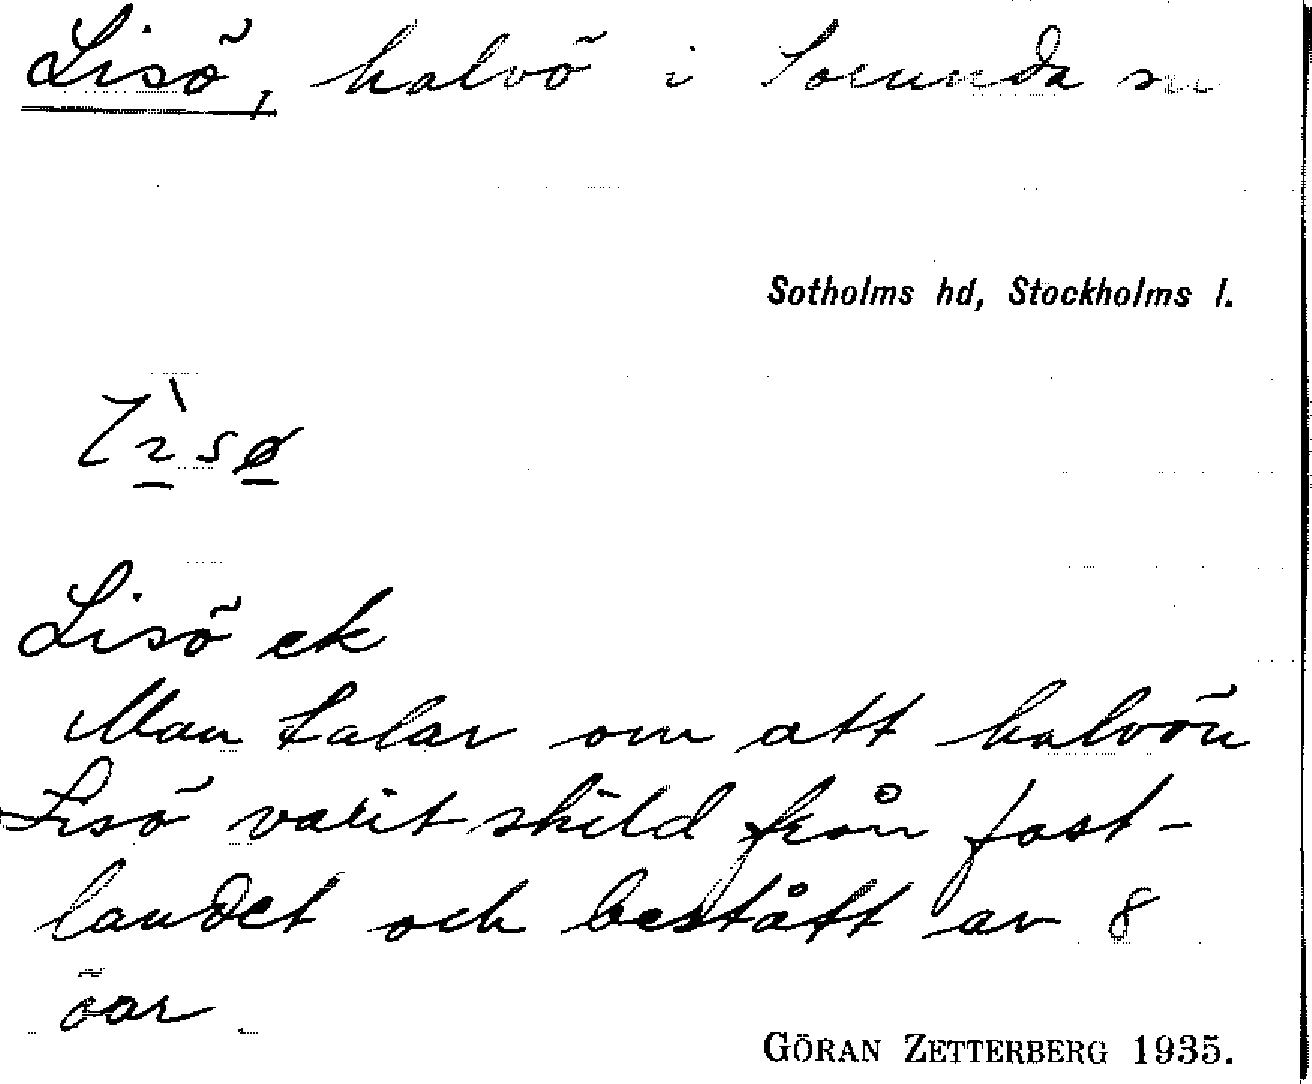 Lisö, halvö i Sorunda sn
Sotholms hd, Stockholms l.
Lisö ek
Man talar om att halvön
Lisö varit skild från fast-
landet och bestått av 8
öar
GÖRAN ZETTERBERG 1935.